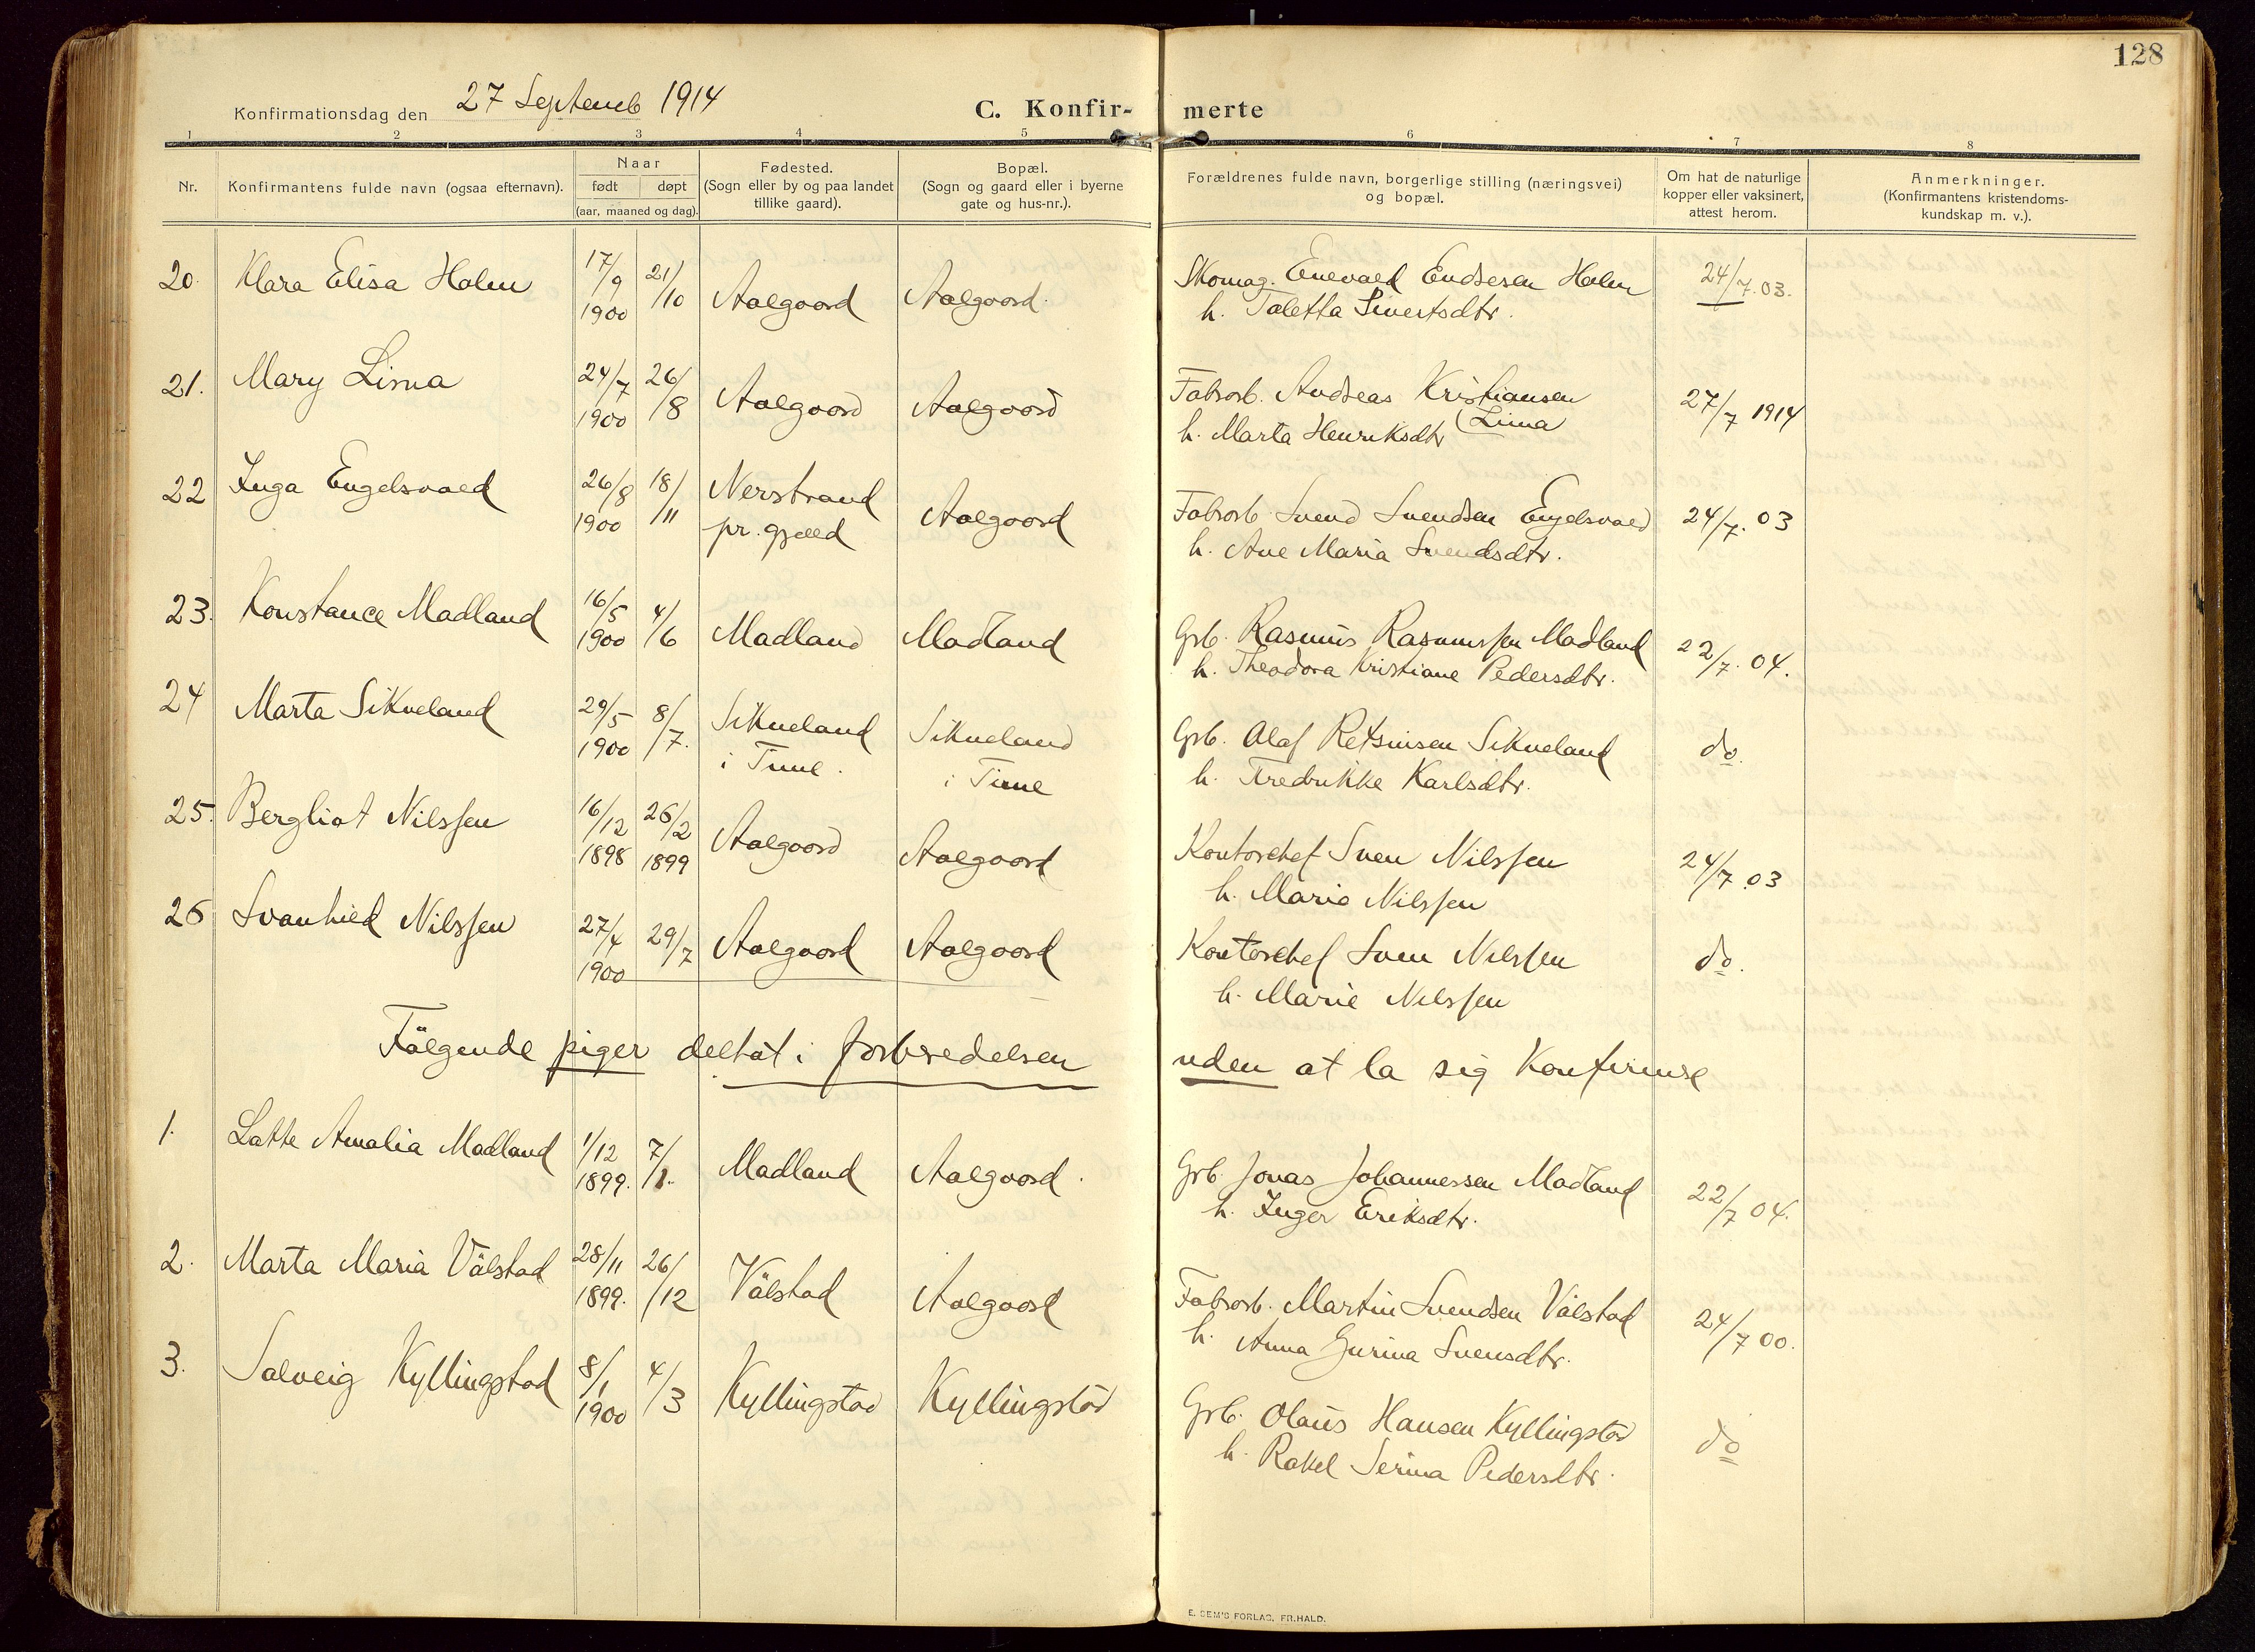 128
Konfirmationsdag den 27 Septemb 1914
C. Konfir- merte
1 2 3 4 5 6 7 8
Nr. Konfirmantens fulde navn (ogsaa efternavn). Naar født døpt (aar, maaned og dag). Fødested. (Sogn eller by og paa landet tillike gaard). Bopæl. (Sogn og gaard eller i byerne gate og hus-nr.). Forældrenes fulde navn, borgerlige stilling (næringsvei) og bopæl. Om hat de naturlige kopper eller vaksinert, attest herom. Anmerkninger. (Konfirmantens kristendoms-kundskap m. v.).
20. Klara Elisa Holm 17/9 1900 21/10 Aalgaard Aalgaard. Skomag. Enevald Endresen Holm 24/7.03.
h. Taletta Sivertsdtr.
21. Mary Lima 24/7 1900 26/8 Aalgaard Aalgaard Fabrarb. Andreas Kristiansen 27/7 1914
h. Marta Henriksdtr (Lima
22 Inga Engelsvold 26/8 1900 18/11 Nerstrand pr.gjeld Aalgaard Fabrarb. Svend Svendsen Engelsvold 24/7.03
h. Ane Maria Svendsdtr.
23. Konstance Madland 16/5 1900 4/6 Madland Madland Grb. Rasmus Rasmussen Madland 22/7.04.
h. Theodora Kristiane Pedersdtr.
24 Marta Sikveland 29/5 1900 8/7. Sikveland i Time. Sikveland i Time Grb. Olaf Retsiusen Sikveland do.
h. Fredrikke Karlsdtr.
25. Bergliot Nilssen 16/12 1898 26/2 1899 Aalgaard Aalgaard Kontorchef Sven Nilssen 24/7.03
h. Marie Nilssen
26 Svanhild Nilssen 27/4 1900 29/7 Aalgaard Aalgaard Kontorchef Sven Nilssen do.
h. Marie Nilssen
Følgende piger deltat i forberedelsen uden at la sig konfirmere
1. Lotte Amalia Madland 1/12 1899. 7/1. Madland Aalgaard. Grb. Jonas Johannessen Madland 22/7 04.
h. Inger Eriksdtr.
2. Marta Maria Vålstad 28/11 1899. 26/12 Vålstad Aalgaard Fabrarb. Martin Svendsen Vålstad 24/7 00.
h. Anna Gurina Svensdtr.
3. Solveig Kyllingstad 8/1 1900 4/3 Kyllingstad Kyllingstad Grb. Olaus Hansen Kyllingstad do
h. Rakel Serina Pedersdtr.
E. SEM'S FORLAG, FR.HALD.